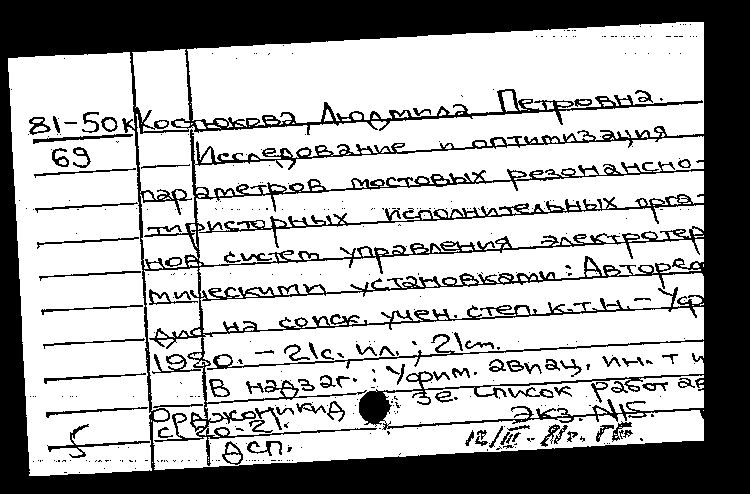 81-50к Костюкова, Людмила Петровна.
69 Исследование и оптимизация
параметров мостовых резонансно-
тиристорных исполнительных орга-
нов систем управления электротер
мическими установками: Авторе
дис. на соиск. учен. степ. к.т.н. - Уф
1980. - 21с., ил.; 21см.
В надзаг.: Уфим. авиац. ин. т и
Орджоникид зе. Список работ ав
с. 20-21. Экз. №15.
5 ДСП. 12/III-81г. ГБ.